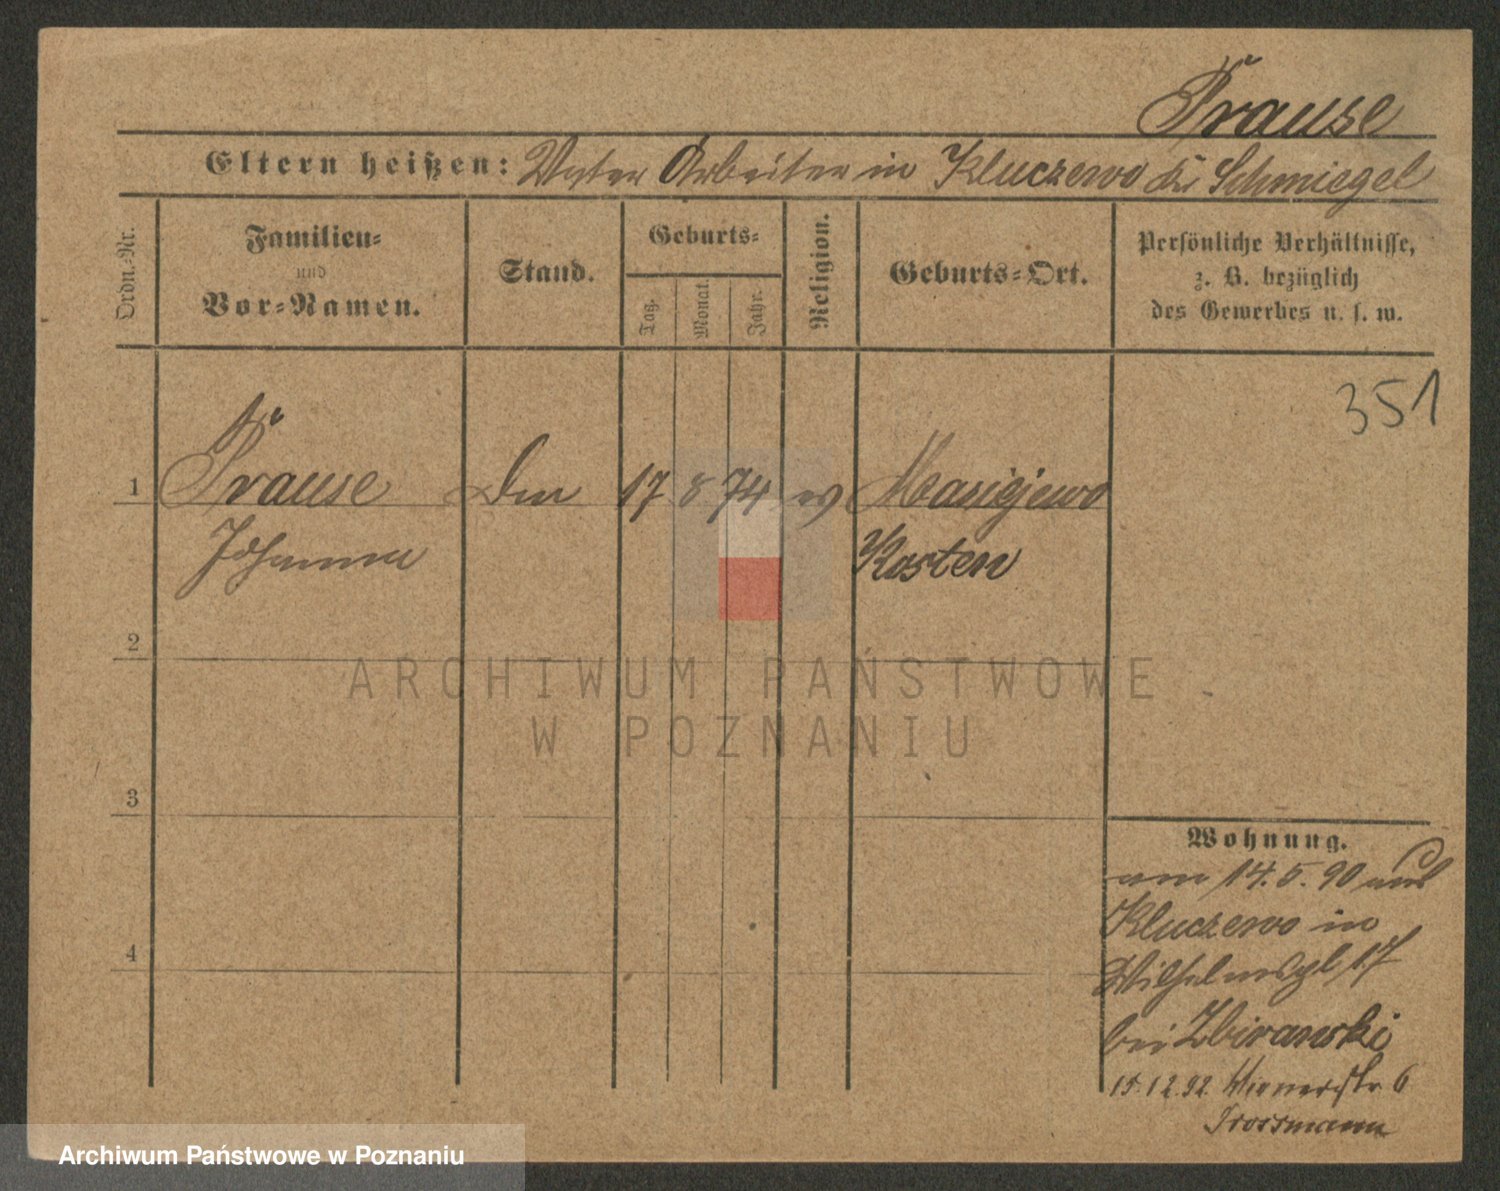 Prause
Eltern heißen: Vater Arbeiter in Kluczewo Krs Schmiegel
Ordn.-Nr.
Familien-
und
Vor-Namen.
Stand.
Geburts-
Tag.
Monat.
Jahr.
Religion.
Geburts-Ort.
Persönliche Verhältnisse,
z. B. bezüglich
des Gewerbes u. s. w.
351
1 Prause 17 8 74
Johanna Kosten
2
ARCHIWUM PAŃSTWOWE
W POZNANIU
3
Wohnung.
am 14.5.90 aus
Kluczewo in
4
Wilhelmspl 17
bei Zbiranski
15.12.92
Archiwum Państwowe w Poznaniu